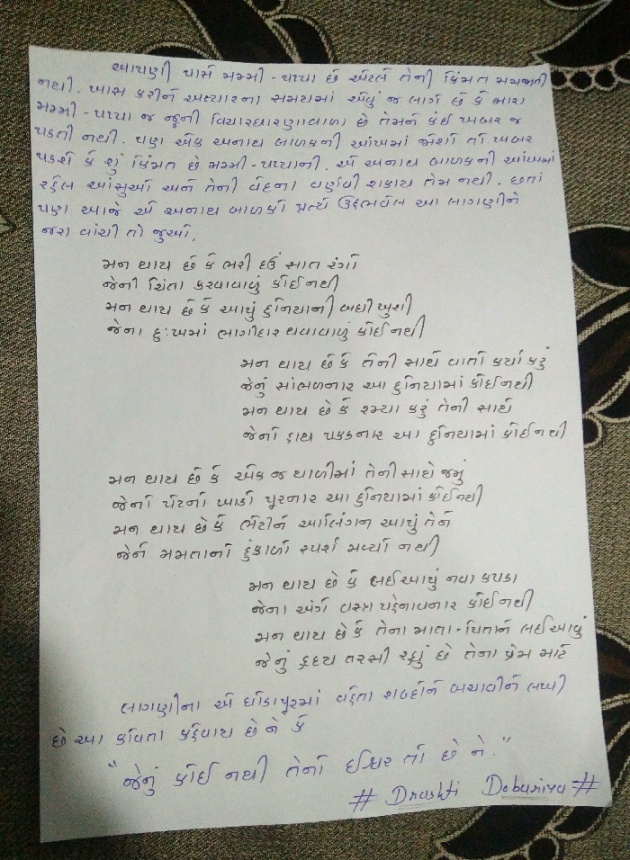 આપણી પાસે મમ્મી - પપ્પા છે એટલે તેની કિંમત સમજાતી
નથી. ખાસ કરીને અત્યારના સમયમાં એવું જ લાગે છે કે મારા
મમ્મી - પપ્પા જ જુની વિચારધારણાવાળા છે તેમને કંઈ ખબર જ
પડતી નથી. પણ એક અનાથ બાળકની આંખમાં જોશો તો ખબર
પડશે કે શું કિંમત છે મમ્મી - પપ્પાની. એ અનાથ બાળકની આંખમાં
રહેલ આંસુઓ અને તેની વેદના વર્ણવી શકાય તેમ નથી. છતાં
પણ આજે એ અનાથ બાળકો પ્રત્યે ઉદ્દભવેલ આ લાગણીને
જરા વાંચી તો જુઓ.
મન થાય છે કે ભરી દઉં સાત રંગો
જેની ચિંતા કરવાવાળું કોઈ નથી
મન થાય છે કે આપું દુનિયાની બધી ખુશી
જેના દુઃખમાં ભાગીદાર થવાવાળું કોઈ નથી
મન થાય છે કે તેની સાથે વાતો કર્યા કરું
જેનું સાંભળનાર આ દુનિયામાં કોઈ નથી
મન થાય છે કે રમ્યા કરું તેની સાથે
જેનો હાથ પકડનાર આ દુનિયામાં કોઈ નથી
મન થાય છે કે એક જ થાળીમાં તેની સાથે જમું
જેના પેટનો ખાડો પૂરનાર આ દુનિયામાં કોઈ નથી
મન થાય છે કે ભેટીને આલિંગન આપું તેને
જેને મમતાનો હુંફાળો સ્પર્શ મળ્યો નથી
મન થાય છે કે લઈ આપું નવા કપડા
જેના અંગે વસ્ત્ર પહેનાવનાર કોઈ નથી
મન થાય છે કે તેના માતા - પિતાને લઈ આવું
જેનું હ્રદય તરસી રહ્યું છે તેના પ્રેમ માટે
લાગણીના એ ઘોડાપૂરમાં વહેતા શબ્દોને બચાવીને લખી
છે આ કવિતા કહેવાય છે ને કે
"જેનું કોઈ નથી તેનો ઈશ્વર તો છે ને."
# Drashti Dobariya #